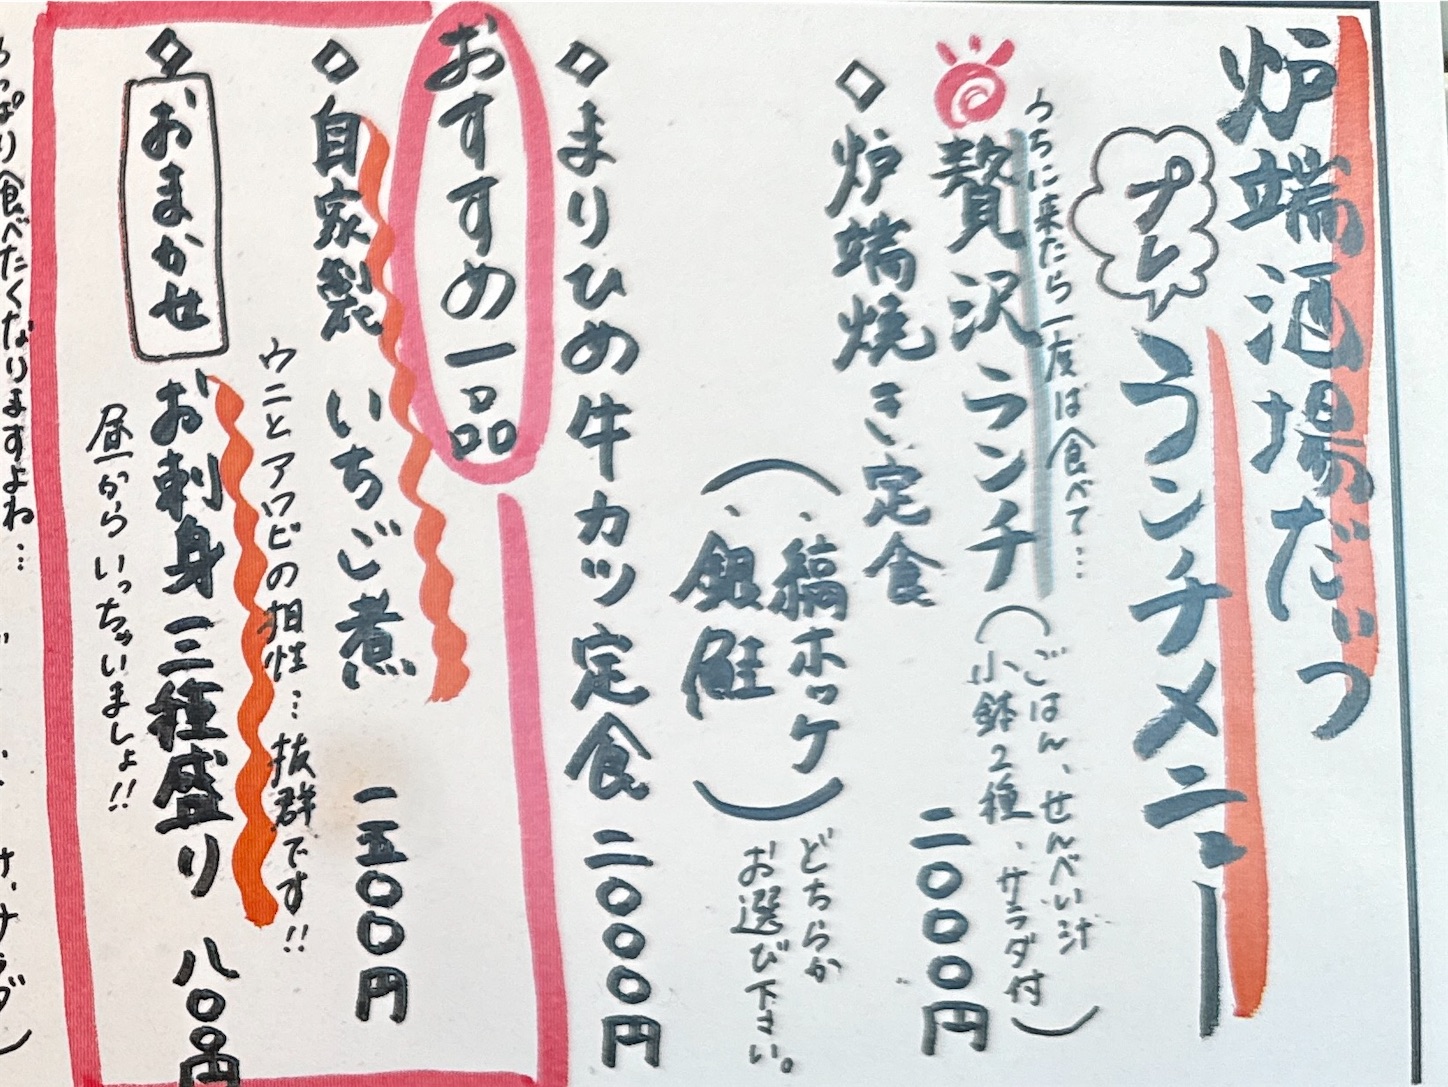 炉端酒場だいつ
プレ
ランチメニュー
うちに来たら一度は食べて…
贅沢ランチ
(ごはん、せんべい汁
小鉢2種、サラダ付)
◇炉端焼き定食 二〇〇〇円
(・縞ホッケ
・銀鮭)
どちらか
お選び下さい。
◇まりひめ牛カツ定食 二〇〇〇円
おすすめ一品
◇自家製 いちご煮 一五〇〇円
ウニとアワビの相性…抜群です!!
◇おまかせ お刺身三種盛り 八〇〇円
昼からいっちゃいましょ!!
っぱり食べたくなりますよね…